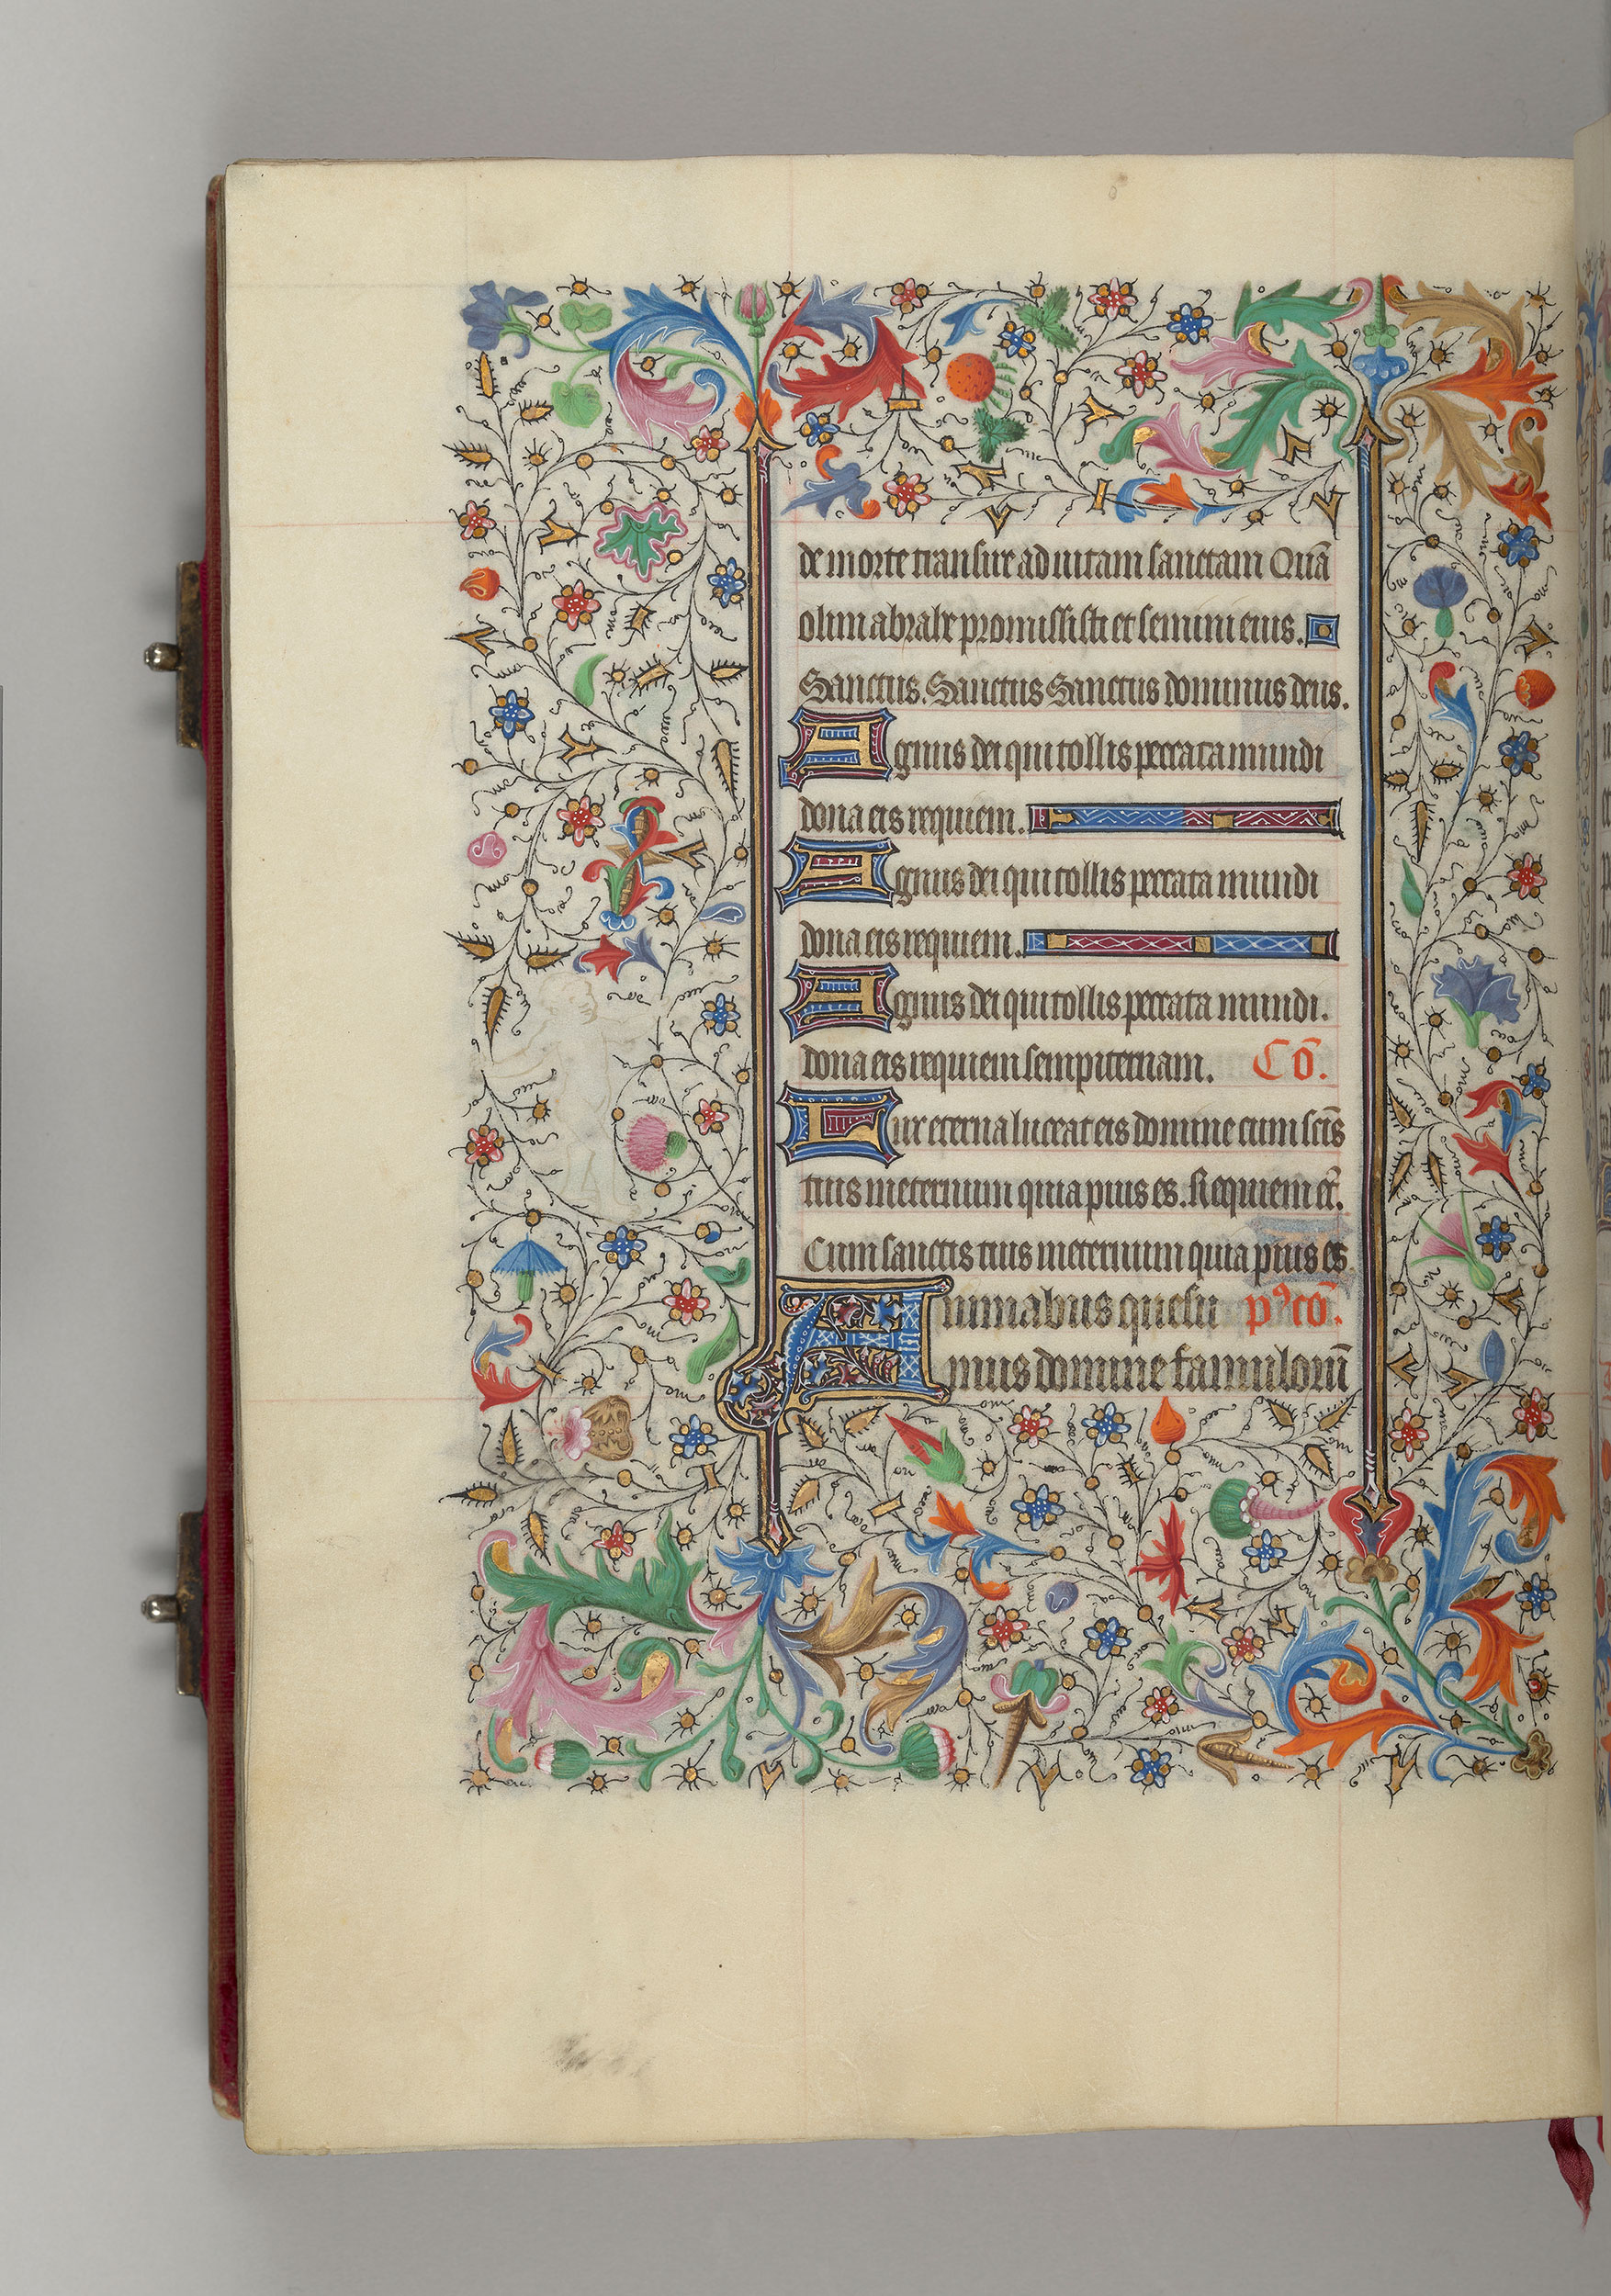 de morte transire ad uitam sanctam Quā
olim abrahe promissisti et semini eius.
Sanctus. Sanctus Sanctus dominus deus.
Agnus dei qui tollis peccata mundi
dona eis requiem.
Agnus dei qui tollis peccata mundi
dona eis requiem.
Agnus dei qui tollis peccata mundi.
dona eis requiem sempiternam. Cō.
Lux eterna luceat eis domine cum scīs
tuis ineternum quia pius es. Requiem et̄.
Cum sanctis tuis ineternum quia pius es
Animabus quesu pꝰcō.
mus domine famulorū